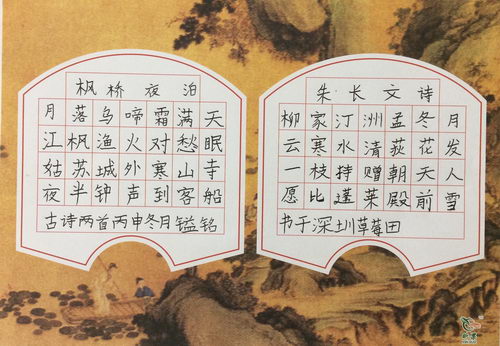 枫桥夜泊
月落乌啼霜满天
江枫渔火对愁眠
姑苏城外寒山寺
夜半钟声到客船
古诗两首丙申冬月镒铭
朱长文诗
柳家汀洲孟冬月
云寒水清荻花发
一枝持赠朝天人
愿比蓬莱殿前雪
书于深圳草莓田